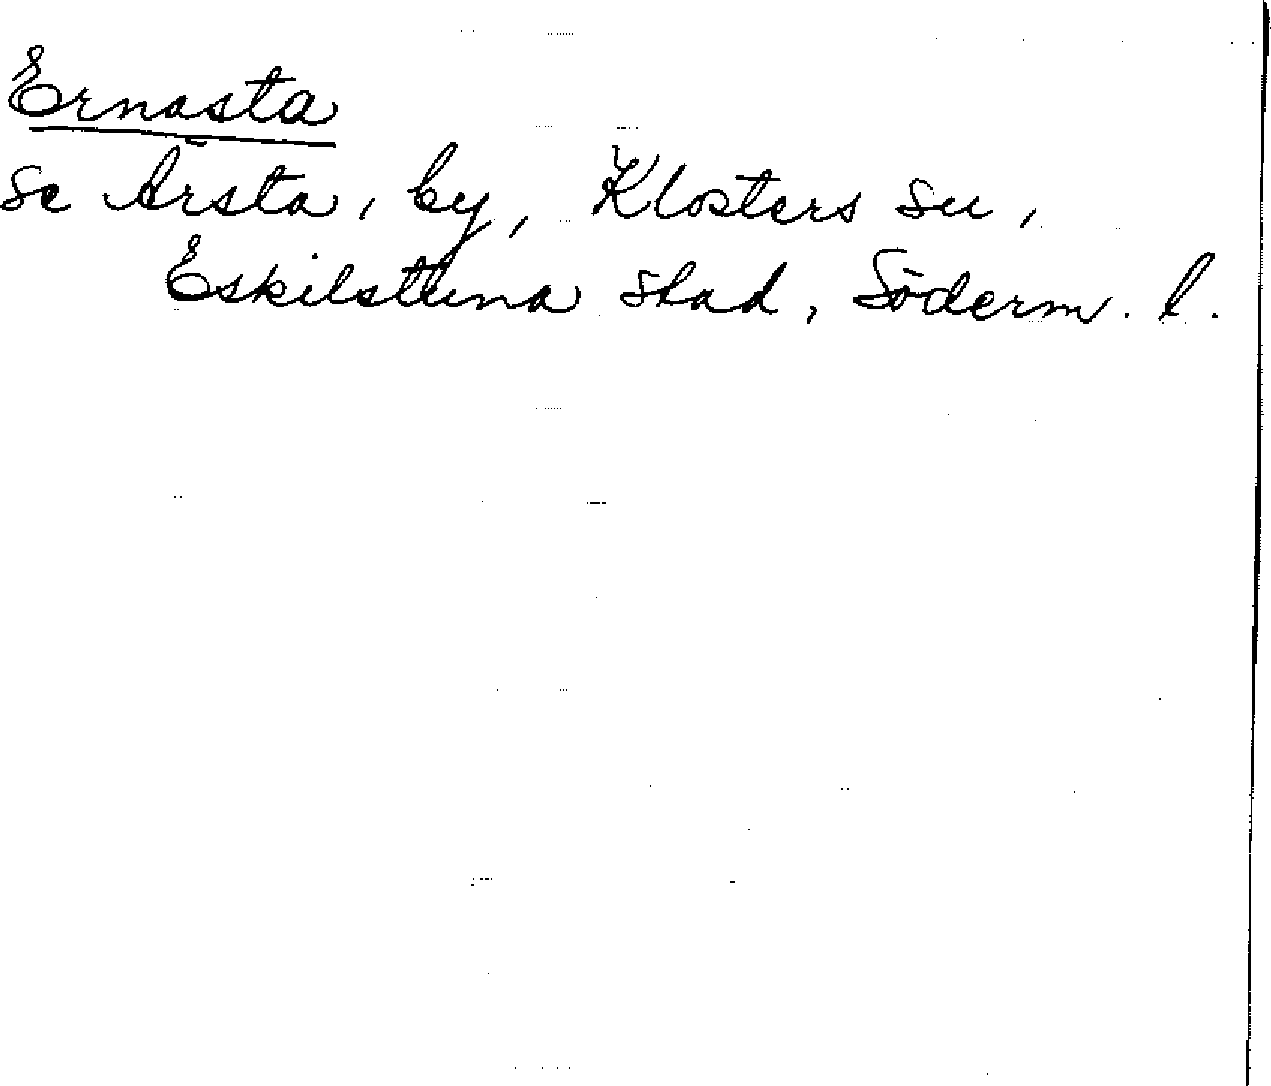 Ernasta
Se Ärsta, by, Klosters sn,
Eskilstuna stad, Söderm. l.